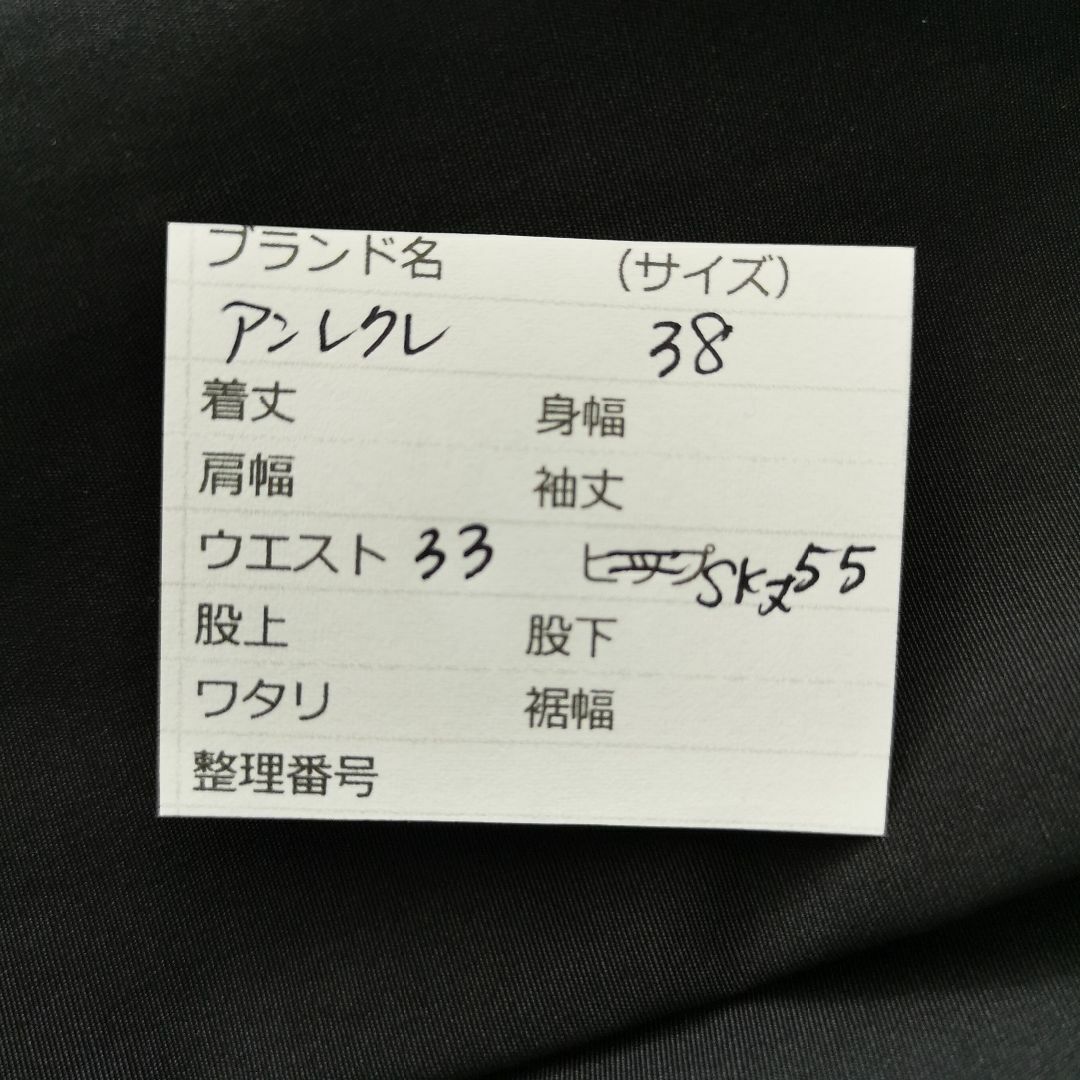 ブランド名 (サイズ)
アンレクレ 38
着丈 身幅
肩幅 袖丈
ウエスト 33 ヒップ SK丈55
股上 股下
ワタリ 裾幅
整理番号